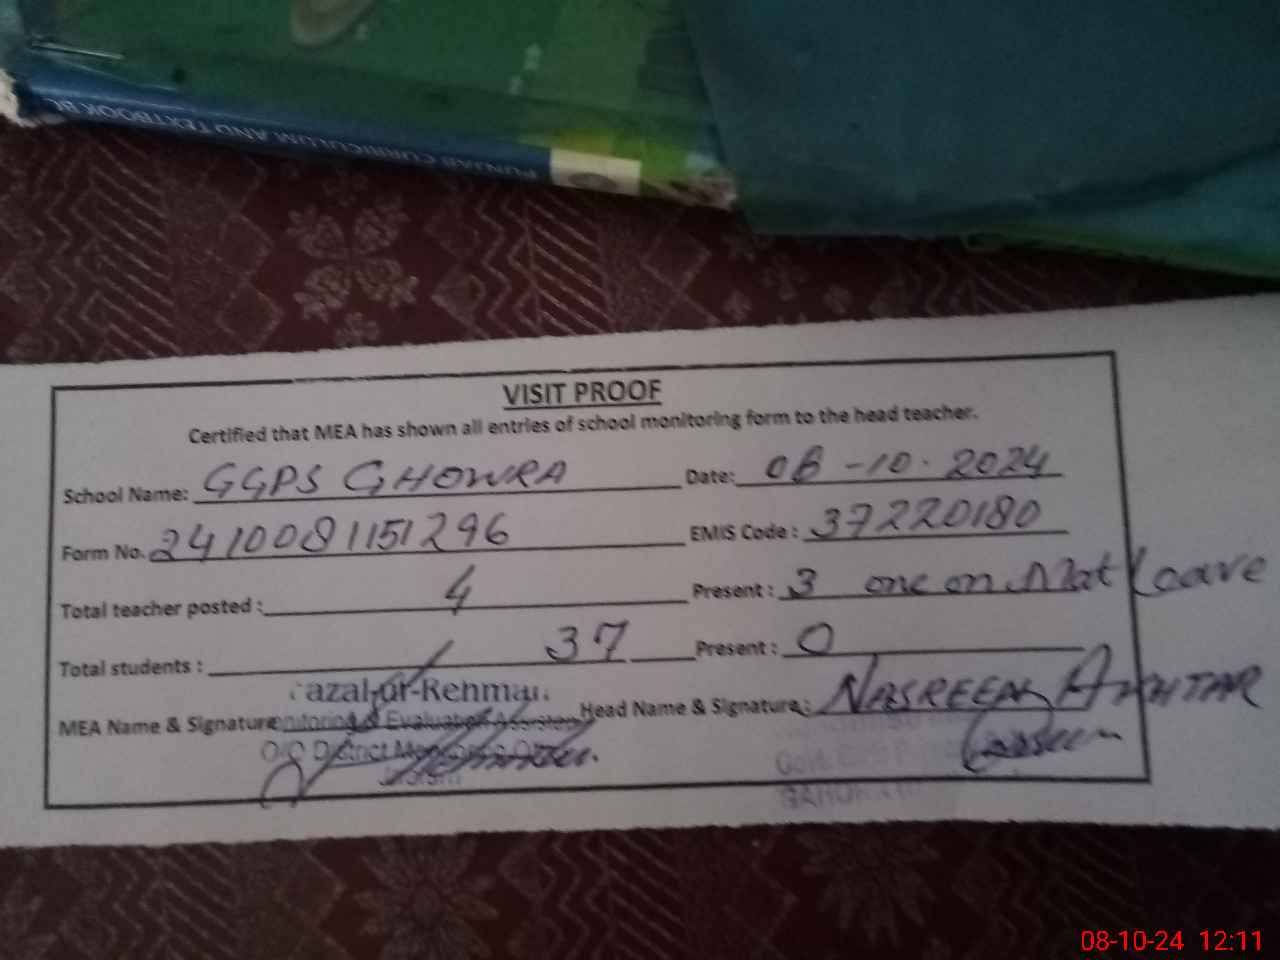 PUNJAB CURRICULUM AND TEXTBOOK
VISIT PROOF
Certified that MEA has shown all entries of school monitoring form to the head teacher.
School Name: GGPS GHOWRA Date: 08-10-2024
Form No. 2410081151296 EMIS Code : 37220180
Total teacher posted : 4 Present : 3 one on Mat Leave
Total students : 37 Present : 0
azal-ur-Rehman
MEA Name & Signature Monitoring & Evaluation Assistant Head Name & Signature: NASREEN AKHTAR
O/O District Monitoring
08-10-24 12:11